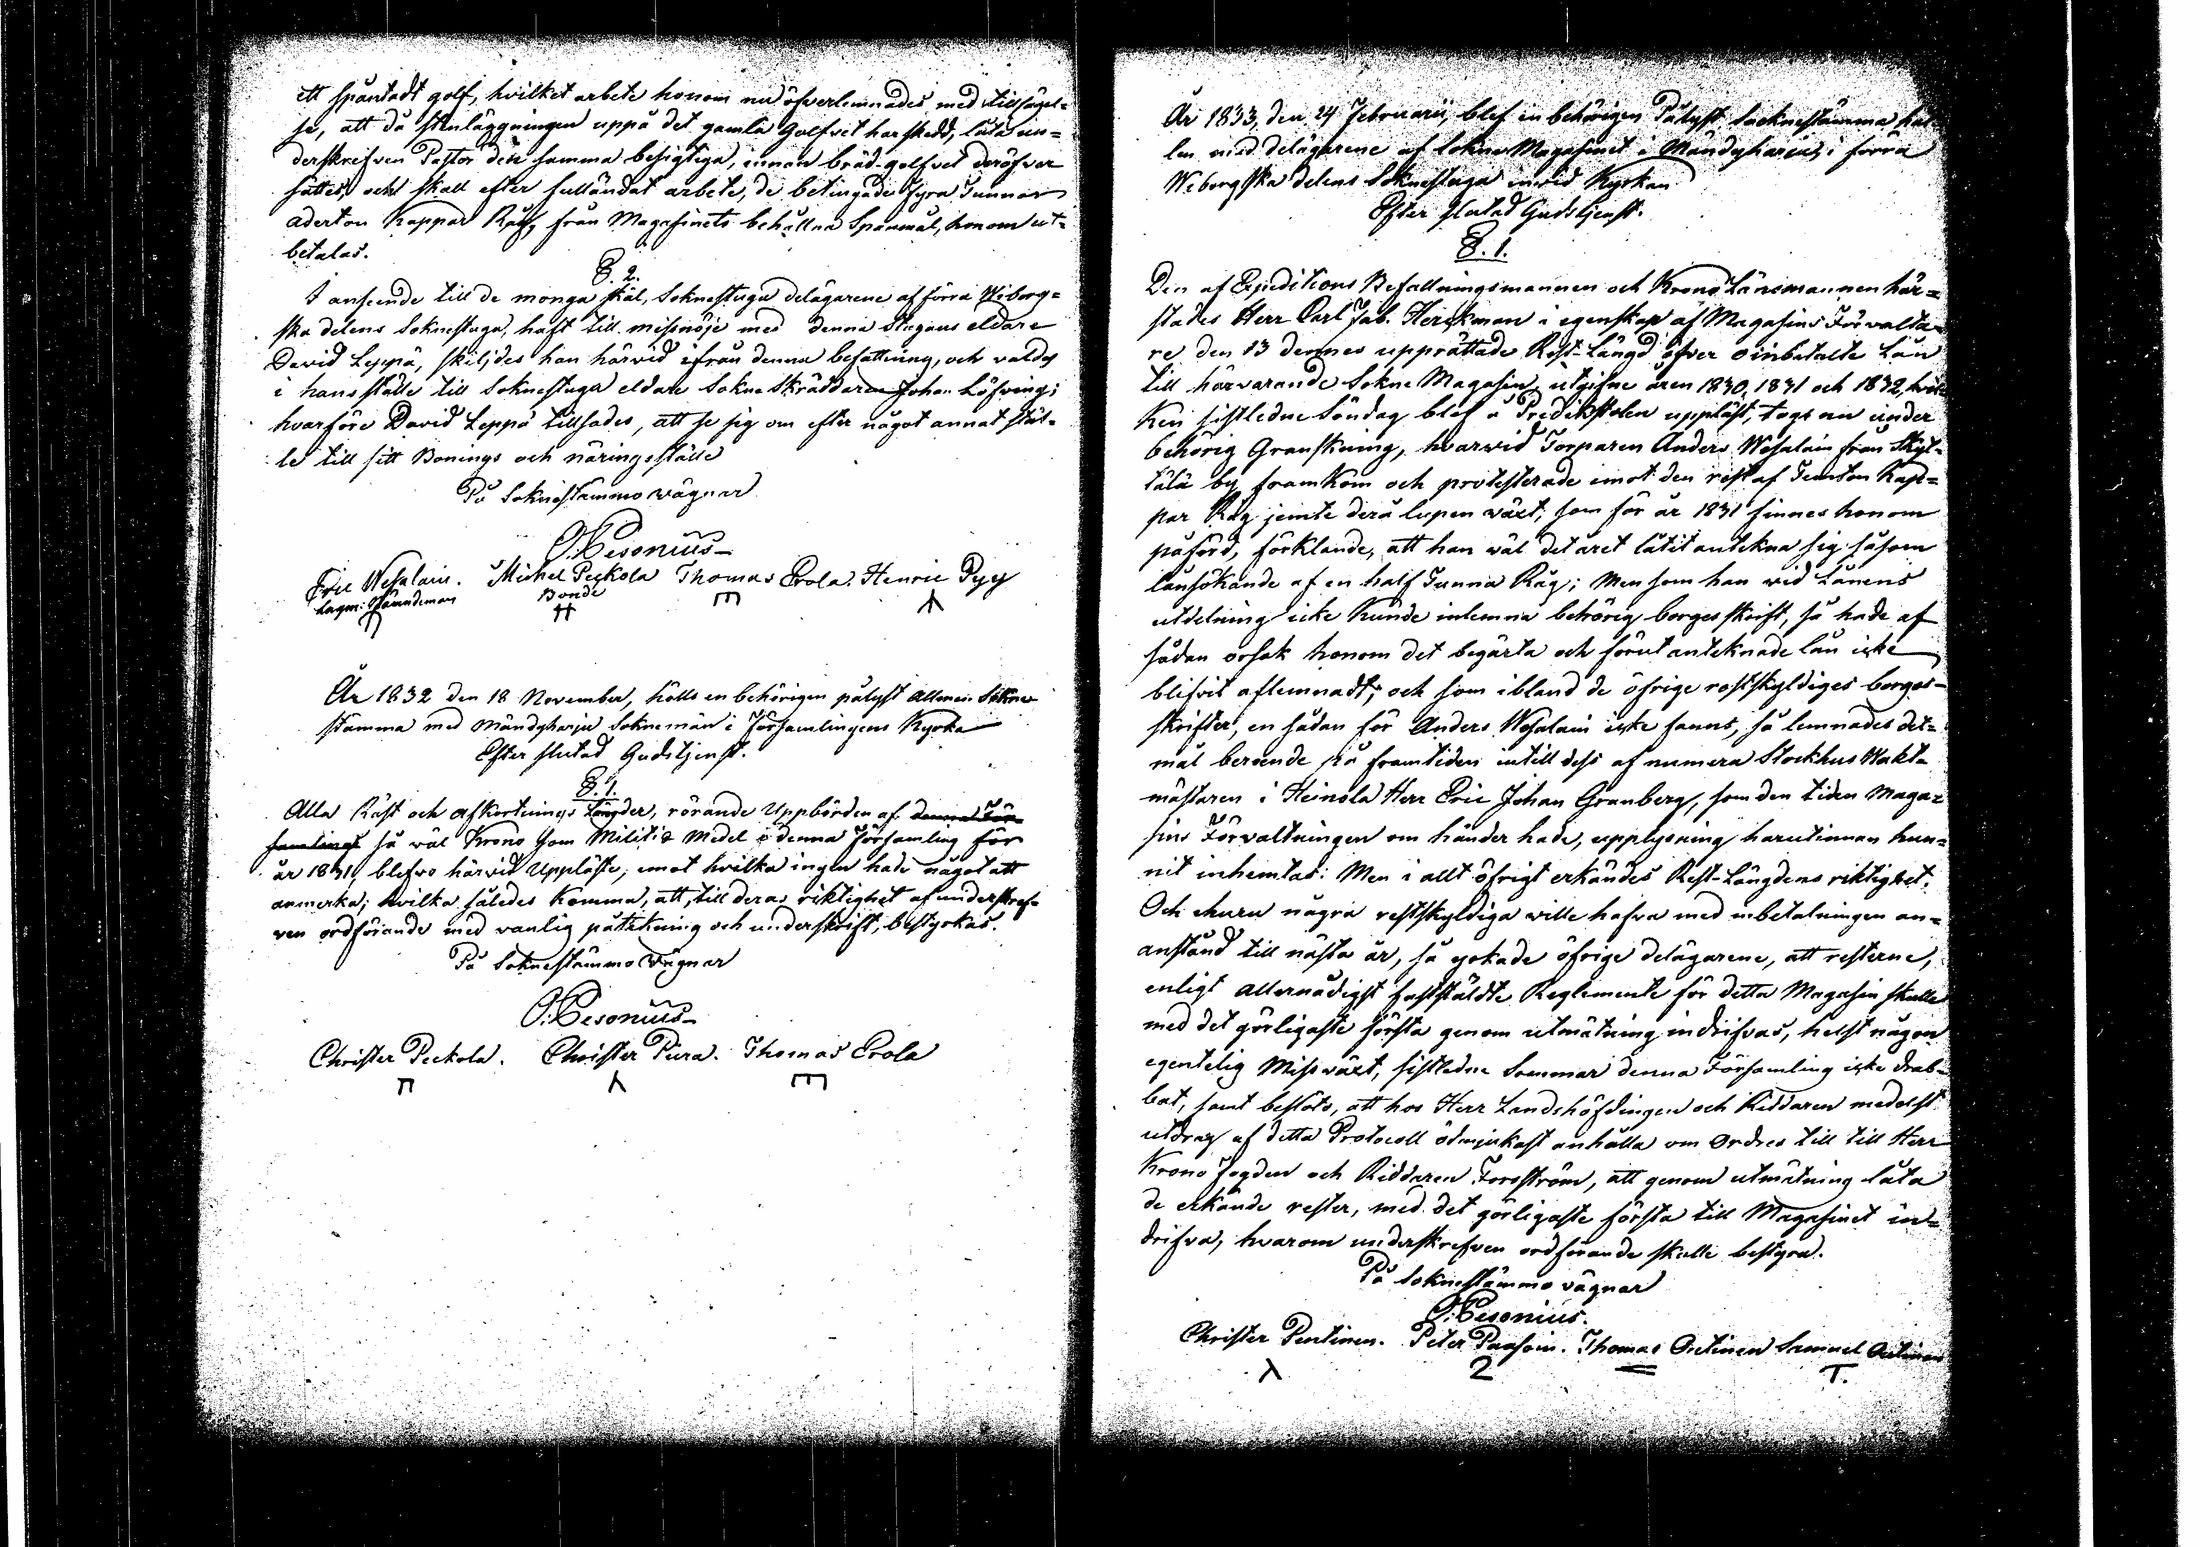 ett spåntadt golf, hvilket arbete honom nu öfverlemnades med tillsägel=
se, att då stenläggningen uppå det gamla Golfvet har skedd, låta un=
derskrefven Pastor den samma besigtiga, innan bräd-golfvet deröfver
sättes, och skall efter fulländat arbete, de betingade Fyra Tunnor
aderton Kappar Råg, från Magasinets behållna Spanmål, honom ut=
betalas.
§. 2.
I anseende till de monga skäl, Soknestugu delägarene af förra Wiborg=
ska delens Soknestuga, haft till missnöje med denna Stugans eldare
David Leppä, skiljdes han härvid ifrån denna befattning, och valdes
i hans ställe till Soknestugu eldare Sokne Skräddaren Johan Löfving;
hvarföre David Leppä tillsades, att se sig om efter något annat stäl=
le till sitt Bonings och näringsställe
På Soknestämmo vägnar
O: Cesonius
Eric Wesalain. Michel Peckola Thomas Erola. Henric Pyy
Lagm: Nämndeman Bonde
År 1832 den 18 November, hölls en behörigen pålyst Allmän Sokne
stämma med Mändyharju Soknemän i Församlingens Kyrka
Efter slutad Gudstjenst.
§. 1.
Alla Räst och Afkortnings Längder, rörande Uppbörden af denna För
samlings så väl Krono som Militiæ Medel i denna Församling för
år 1831, blefvo härvid Uppläste, emot hvilka ingen hade något att
anmerka; hvilka således komma, att, till deras riktighet af underskref=
ven ordförande med vanlig påtekning och underskrift, bestyrkas.
På Soknestämmo Vägnar
O: Cesonius
Christer Peckola. Christer Piira. Thomas Erola
År 1833, den 24 Februarii, blef en behörigen Pålyst Socknestämma hål
len med delägarene af Sokne Magasinet i Mändyharju, i förra
Wiborgska delens Soknestuga invid Kyrkan
Efter slutad Gudstjenst.
§. 1.
Den af Expeditions Befallningsmannen och Krono Länsmannen här=
stades Herr Carl Fab. Herckman i egenskap af Magasins Förvalta=
re den 13 dennes upprättade Rest-Längd öfver oinbetalte Lån
till härvarande Sokne Magasin, utgifne åren 1830, 1831 och 1832, hvil=
ken sistledne Söndag blef å Predikstolen uppläst, togs nu under
behörig Granskning, hvarvid Torparen Anders Wesalain från Skyt=
tälä by framkom och protesterade emot den rest af Femton Kap=
par Råg jemte derå lupen växt, som för år 1831 finnes honom
påförd, förklande, att han väl det året låtit antekna sig såsom
lånsökande af en half Tunna Råg; Men som han vid Lånens
utdelning icke kunde inlemna behörig borgesskrift, så hade af
sådan orsak honom det begärta och förut anteknade lån icke
blifvit aflemnadt; och som ibland de öfrige restskyldiges borges=
skrifter, en sådan för Anders Wesalain icke fanns, så lemnades det=
mål beroende på framtiden intill dess af numera Stockhus Wakt=
mästaren i Heinola Herr Eric Johan Granberg, som den tiden Maga=
sins Förvaltningen om händer hade, upplysning harutinnan hun=
nit inhemtas: Men i allt öfrigt erkändes Rest-Längdens riktighet.
Och ehuru några restskyldiga ville hafva med inbetalningen an=
anstånd till nästa år, så yrkade öfrige delägarene, att resterne,
enligt Allernådigst faststäldte Reglemente för detta Magasin skulle
med det görligaste första genom utmätning indrifvas, helst någon
egentelig Missväxt, sistledne Sommar denna Församling icke drab=
bat, samt beslöts, att hos Herr Landshöfdingen och Riddaren medelst
utdrag af detta Protocoll ödmjukast anhålla om Ordres till till Herr
Krono Fogden och Riddaren Forsström, att genom utmätning låta
de erkände rester, med det görligaste första till Magasinet in=
drifva, hvarom underskrefven ordförande skulle bestyra.
På Soknestämmo vägnar
O: Cesonius.
Christer Pentinen. Peter Paasoin. Thomas Outinen Samuel Outinen